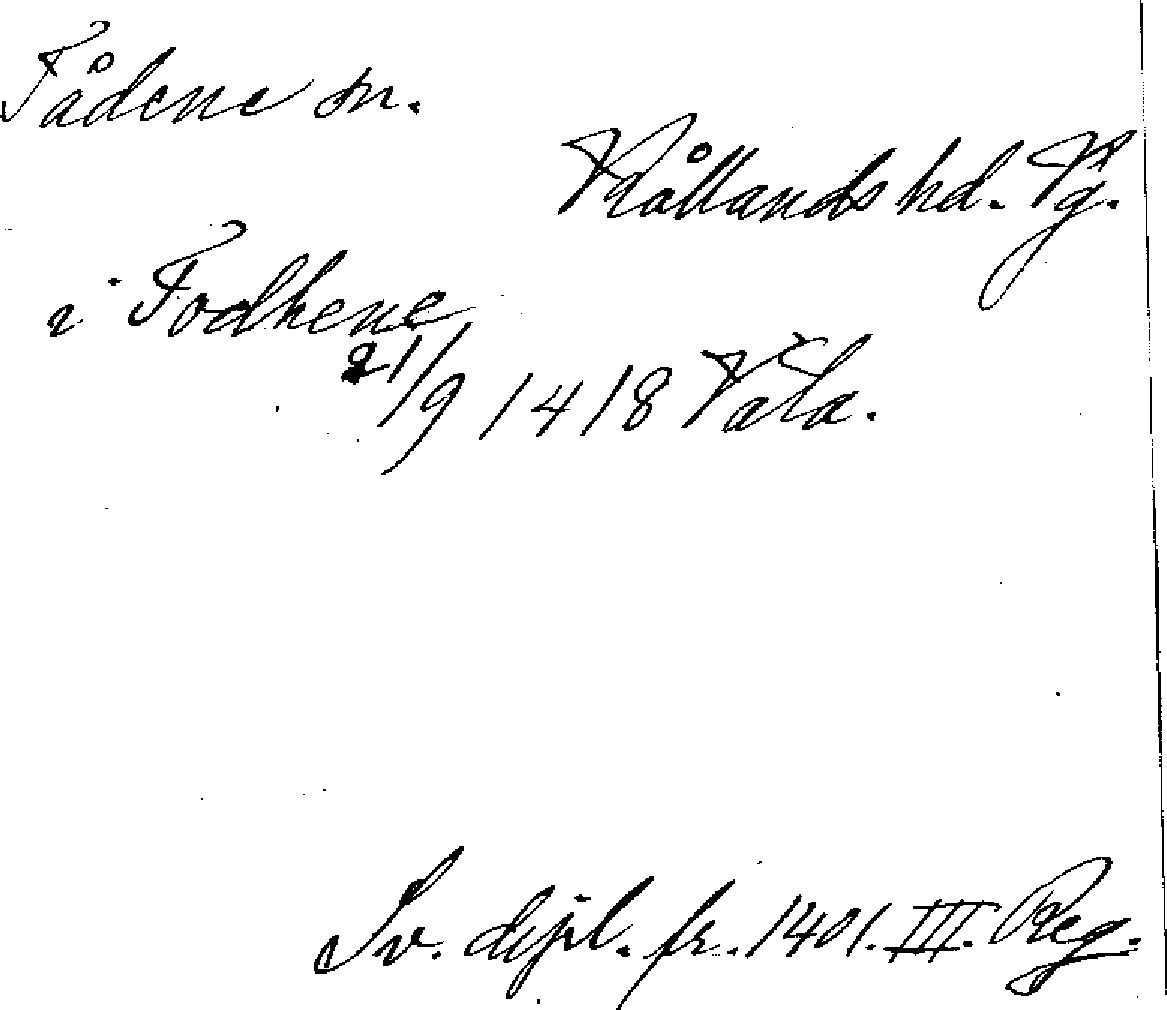 Tådene sn.
Kållands hd. Vg.
i Todhene
21/9 1418 Vata.
Sv. dipl. fr. 1401. III. Reg.